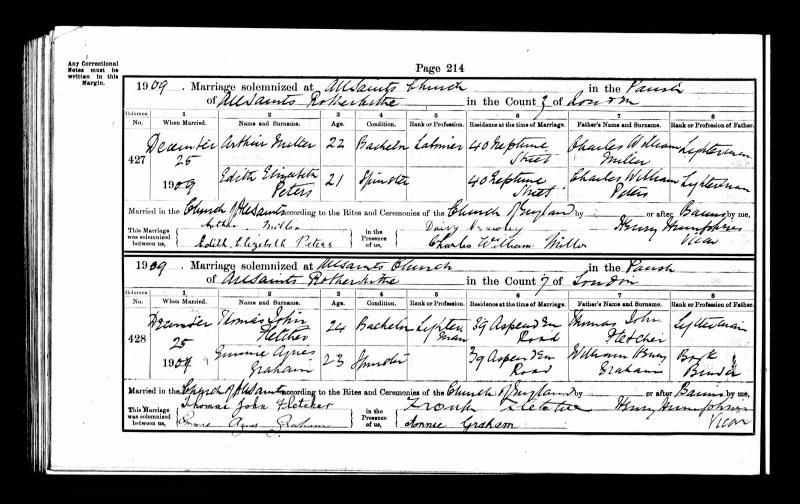 Any Correctional
Notes must be
written in this
Margin.
Page 214
1909. Marriage solemnized at All Saints Church in the Parish
of All Saints Rotherhithe in the County of London
Columns. 1 2 3 4 5 6 7 8
No. When Married. Name and Surname. Age. Condition. Rank or Profession. Residence at the time of Marriage. Father's Name and Surname. Rank or Profession of Father.
427 December 25 1909 Arthur Miller 22 Bachelor Labourer 40 Neptune Street Charles William Miller Lighterman
Edith Elizabeth Peters 21 Spinster 40 Neptune Street Charles William Peters Lighterman
Married in the Church of All Saints according to the Rites and Ceremonies of the Church of England by or after Banns by me,
This Marriage was solemnized between us, Arthur Miller in the Presence of us, Daisy Henry Humphries
Edith Elizabeth Peters Charles William Miller Vicar
1909. Marriage solemnized at All Saints Church in the Parish
of All Saints Rotherhithe in the County of London
Columns. 1 2 3 4 5 6 7 8
No. When Married. Name and Surname. Age. Condition. Rank or Profession. Residence at the time of Marriage. Father's Name and Surname. Rank or Profession of Father.
428 December 25 1909 Thomas John Fletcher 24 Bachelor Lighterman 39 Aspenden Road Thomas John Fletcher Lighterman
Agnes Graham 23 Spinster 39 Aspenden Road William Henry Graham Book Binder
Married in the Church of All Saints according to the Rites and Ceremonies of the Church of England by or after Banns by me,
This Marriage was solemnized between us, Thomas John Fletcher in the Presence of us, Frank Fletcher Henry Humphries
Agnes Graham Annie Graham Vicar